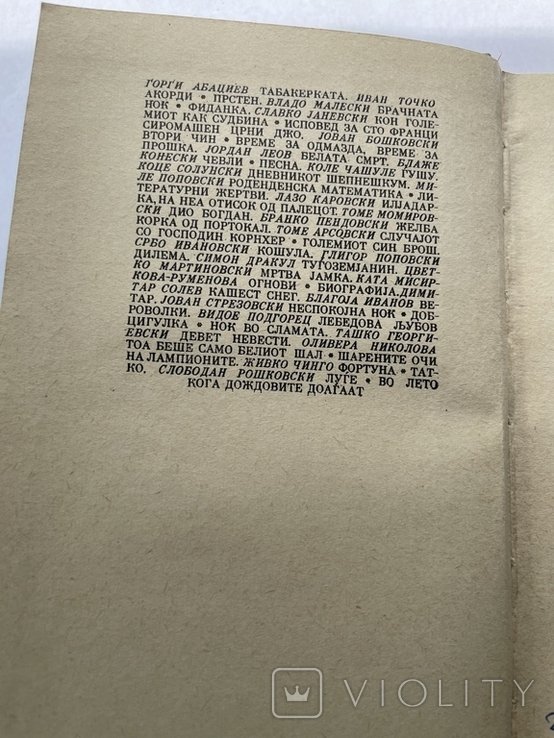 ЃОРЃИ АБАЏИЕВ ТАБАКЕРКАТА. ИВАН ТОЧКО
АКОРДИ • ПРСТЕН. ВЛАДО МАЛЕСКИ БРАЧНАТА
НОЌ • ФИДАНКА. СЛАВКО ЈАНЕВСКИ КОН ГОЛЕ-
МИОТ КАК СУДБИНА • ИСПОВЕД ЗА СТО ФРАНЦИ
СИРОМАШЕН ЦРНИ ЏО. ЈОВАН БОШКОВСКИ
ВТОРИ ЧИН • ВРЕМЕ ЗА ОДМАЗДА, ВРЕМЕ ЗА
ПРОШКА. ЈОРДАН ЛЕОВ БЕЛАТА СМРТ. БЛАЖЕ
КОНЕСКИ ЧЕВЛИ • ПЕСНА. КОЛЕ ЧАШУЛЕ ЃУШУ.
КОЦЕ СОЛУНСКИ ДНЕВНИКОТ ШЕПНЕШКУМ. МИ-
ЛЕ ПОПОВСКИ РОДЕНДЕНСКА МАТЕМАТИКА • ЛИ-
ТЕРАТУРНИ ЖЕРТВИ. ЛАЗО КАРОВСКИ ИЛЈАДАР-
КА, НА НЕА ОТИСОК ОД ПАЛЕЦОТ. ТОМЕ МОМИРОВ-
СКИ ДИО БОГДАН. БРАНКО ПЕНДОВСКИ ЖЕЛБА •
КОРКА ОД ПОРТОКАЛ. ТОМЕ АРСОВСКИ СЛУЧАЈОТ
СО ГОСПОДИН КОРНХЕР • ГОЛЕМИОТ СИН БРОШ.
СРБО ИВАНОВСКИ КОШУЛА. ГЛИГОР ПОПОВСКИ
ДИЛЕМА. СИМОН ДРАКУЛ ТУЃОЗЕМЈАНИН. ЦВЕТ-
КО МАРТИНОВСКИ МРТВА ЈАМКА. КАТА МИСИР-
КОВА-РУМЕНОВА ОГНОВИ • БИОГРАФИЈА. ДИМИ-
ТАР СОЛЕВ КАШЕСТ СНЕГ. БЛАГОЈА ИВАНОВ ВЕ-
ТАР. ЈОВАН СТРЕЗОВСКИ НЕСПОКОЈНА НОЌ • ДОБ-
РОВОЛКИ. ВИДОЕ ПОДГОРЕЦ ЛЕБЕДОВА ЉУБОВ
ЦИГУЛКА • НОЌ ВО СЛАМАТА. ТАШКО ГЕОРГИ-
ЕВСКИ ДЕВЕТ НЕВЕСТИ. ОЛИВЕРА НИКОЛОВА
ТОА БЕШЕ САМО БЕЛИОТ ШАЛ • ШАРЕНИТЕ ОЧИ
НА ЛАМПИОНИТЕ. ЖИВКО ЧИНГО ФОРТУНА • ТАТ-
КО. СЛОБОДАН РОШКОВСКИ ЛУЃЕ • ВО ЛЕТО
КОГА ДОЖДОВИТЕ ДОАЃААТ
VIOLITY